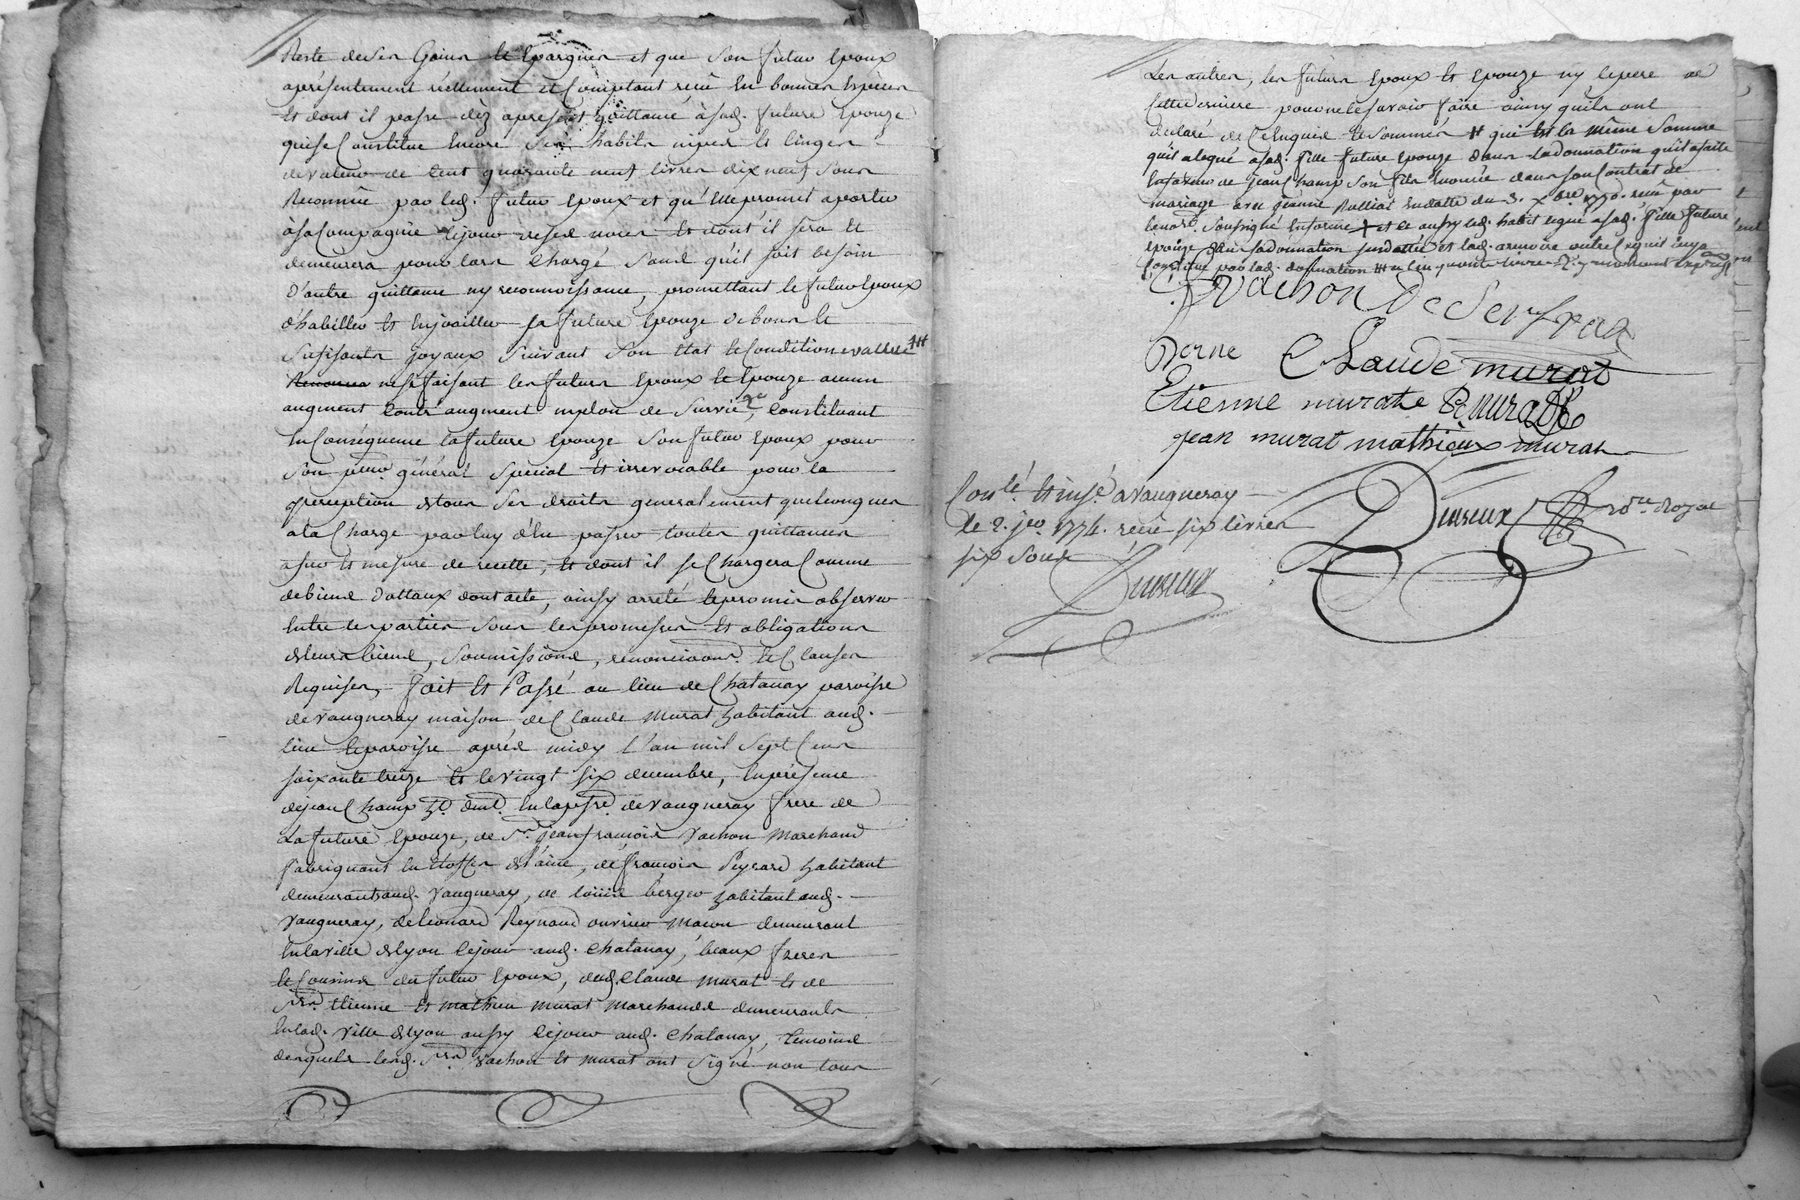 Reste de ses Gains et Epargnes et que son futur Epoux
a présentement réellement et Comptant receu En bonnes Espèces
Et dont il passe dèz apresent quittance à sad. future Epouze
qui se Constitue Encore ses habits nipes Et linges
de valeur de Cent quarante neuf livres dix neuf sous
Reconnüe par led. futur Epoux et qu'Elle promet aporter
à sa Compagnie le jour de ses noces Et dont il sera Et
demeurera pour lors Chargé sans qu'il soit besoin
d'autre quittance ny reconnoissance, promettant le futur Epoux
d'habiller Et Enjoailler sa future Epouze de bons Et
sufisants joyaux suivant son Etat Et Condition evalués
ne se faisant les futurs Epoux Et Epouze aucun
augment Contr'augment ny don de survie, Constituant
En Conséquence la future Epouze son futur Epoux pour
son procur. général spécial Et irrevocable pour la
perception de tous ses droits generalement quelconques
a la Charge par luy d'En passer toutes quittances
a fur Et mesure de recette, Et dont il se Chargera Comme
de biens dottaux dont acte, ainsy arreté Et promis observer
Entre les parties sous les promesses Et obligations
de leurs biens, soumissions, renonciations Et Clauses
Requises, fait Et Passé au lieu de Chatanay paroisse
de Vaugneray maison de Claude Murat habitant aud.
lieu Et paroisse aprés midy l'an mil sept Cens
soixante treize Et le vingt six decembre, En présence
de jean Champ En la psse de Vaugneray frere de
La future Epouze, de Sr. jean francois Vachon Marchand
fabriquant En Etoffes de laine, de francois Peyrard habitant
demeurant aud. Vaugneray, de Louis berger habitant aud.
Vaugneray, de Leonard Reynaud ouvrier macon demeurant
En la ville de Lyon Ce jour aud. Chatanay, beaux freres
Et Cousins du futur Epoux, dud. Claude Murat Et de
Srs. Etienne Et Mathieu Murat Marchands demeurants
En lad. ville de Lyon aussy Ce jour aud. Chatanay, temoins
desquels lesd. Srs. Vachon Et Murat ont signé non tous
Les autres, les futurs Epoux Et Epouze ny le pere de
cette derniere pour ne le savoir faire ainsy qu'ils ont
declaré de Ce Enquis Et Sommés qui Est la même somme
qu'il a legué a sad. fille future Epouze dans la donnation qu'il a faite
En faveur de jean Champ son fils Enoncée dans son Contrat de
mariage avec jeanne Ralliat En datte du 3. Xbre 1770. receu par
le not. soussigné
Epouze dans sa donnation susdattée Et lad. armoire
Constitué par lad. donnation
Vachon De
Claude murat
Etienne murat murat
jean murat mathieux murat
Conlé. Et insé. a Vaugneray
le 2. jer. 1774. receu six livres
six sous